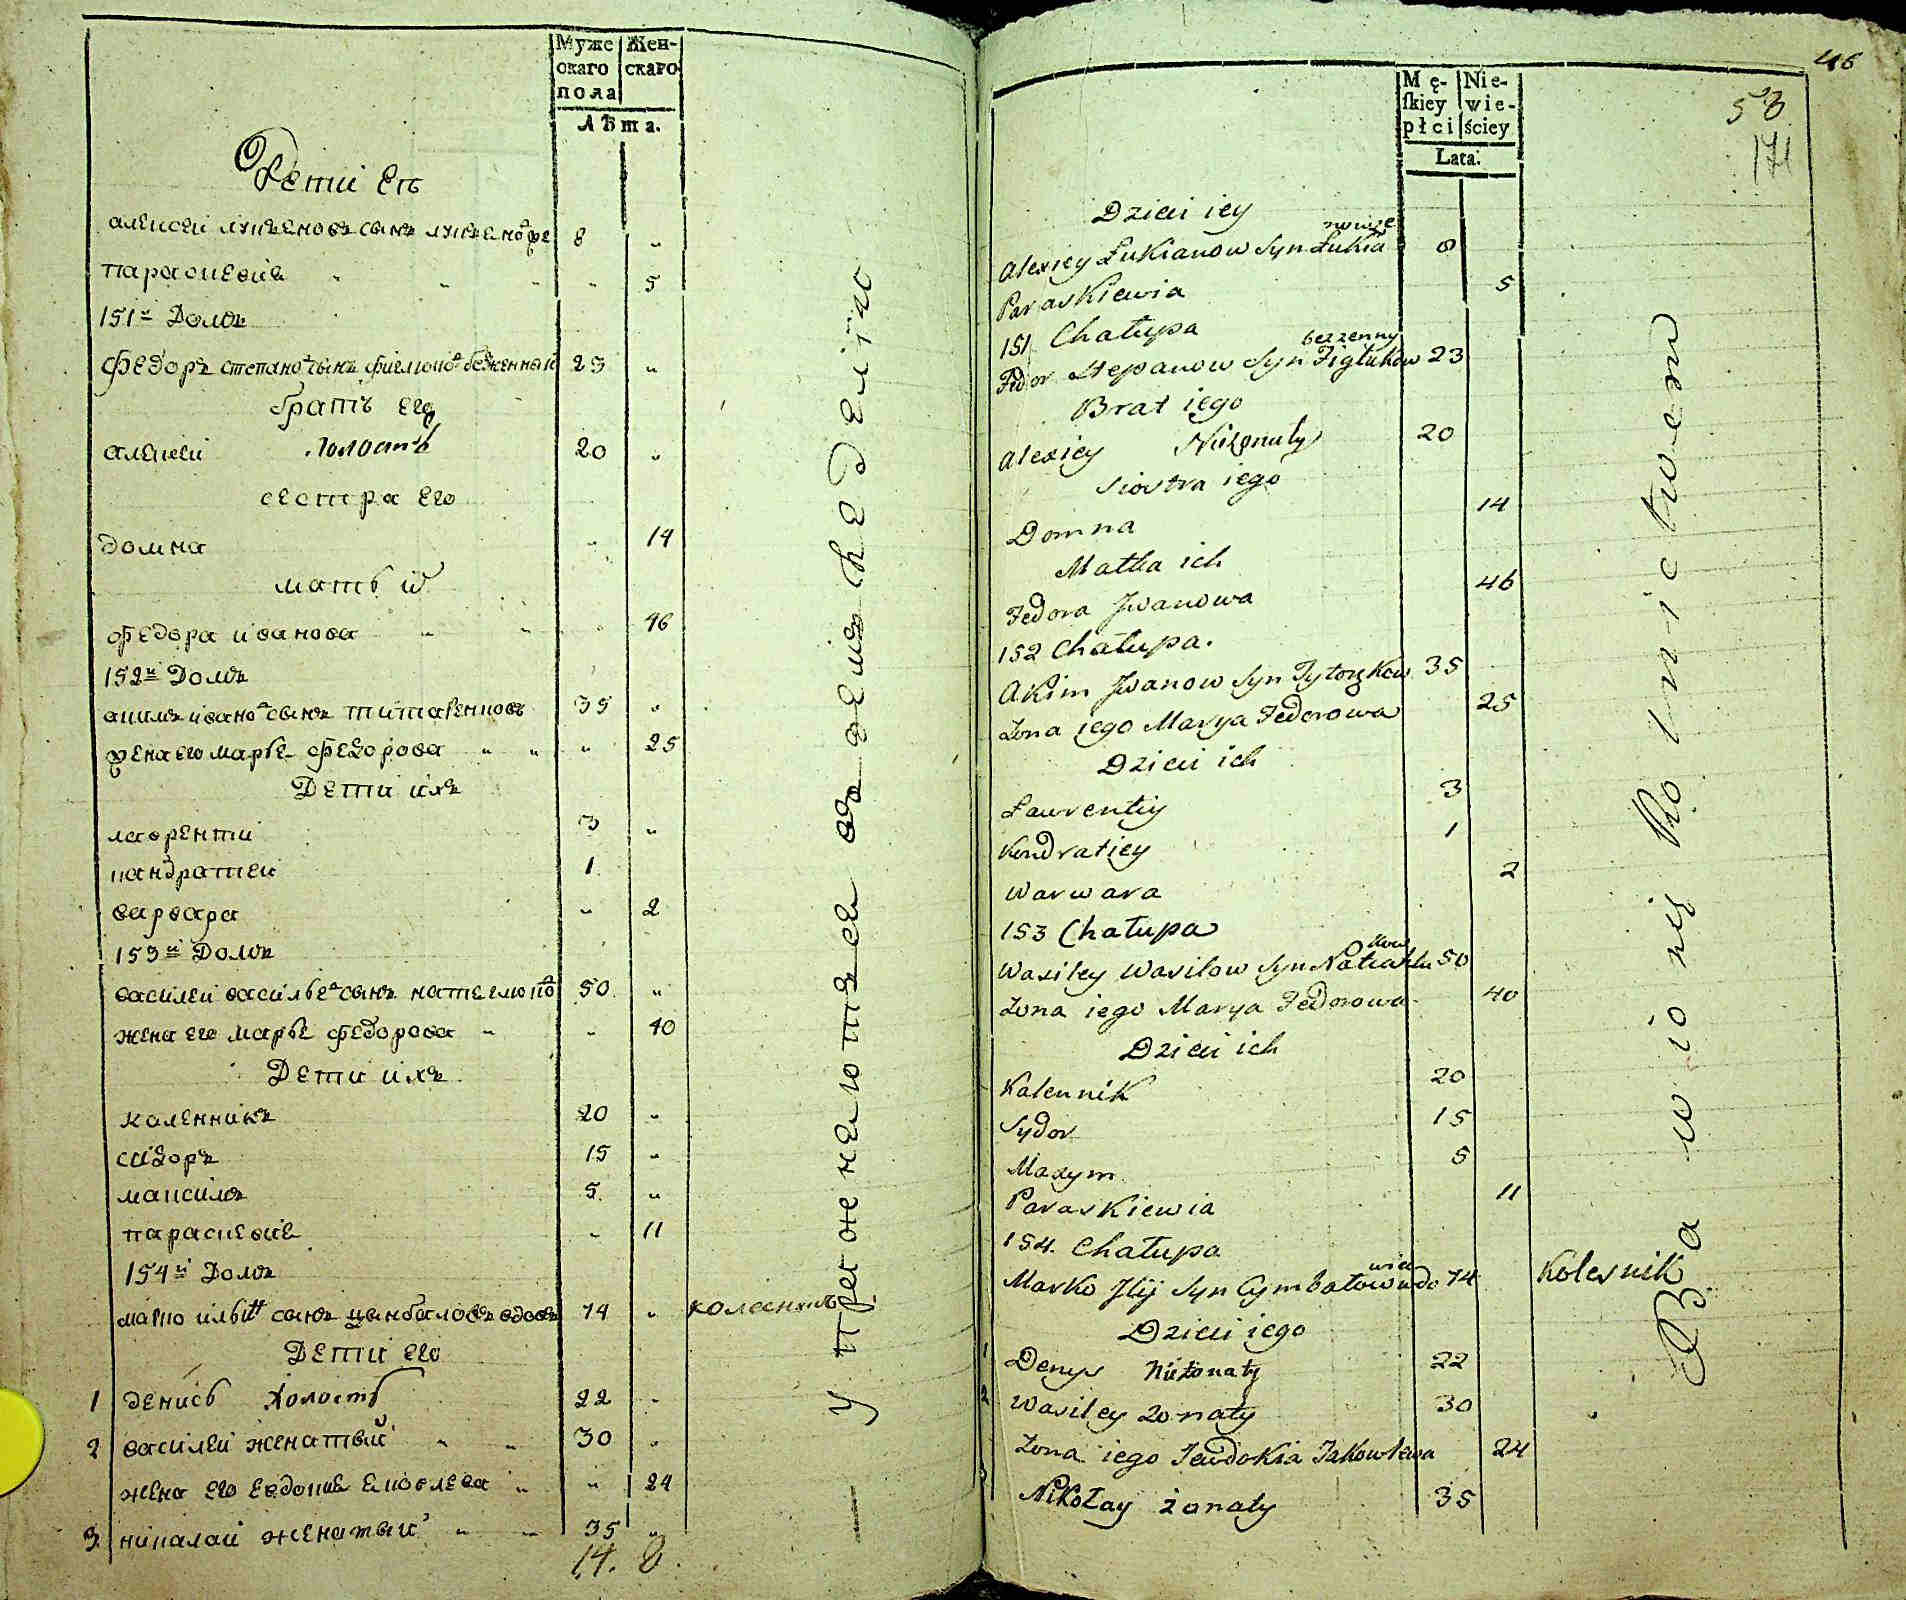 Муже Жен-
скаго скаго
пола
Лѣта.
Дети еѣ
алексей лукъеновъ сынъ 8 „
параскевие „ 5
151й Домъ
Федоръ степано сынъ 23 „
братъ его
алексей холостъ 20 „
сестра его
домна „ 14
мать и
федора иванова „ 46
152й Домъ
акимъ ивано сынъ титаренковъ 35 „
жена его марье федорова „ 25
Дети ихъ
лаврентии 3 „
кандратеи 1
варвара „ 2
153й Домъ
василеи василье сынъ 50 „
жена его марье федорова „ 40
Дети ихъ
каленникъ 20 „
сидоръ 15 „
максимъ 5 „
параскевие „ 11
154й Домъ
марко ильи сынъ цынбаловъ вдовъ 74 „ колесникъ
Дети его
1 денисъ холостъ 22 „
2 василеи женатыи 30 „
жена его евдокие ековлева „ 24
3 николаи женатыи 35 „
14. 8.
упрожнеютъсе въ земледелію
46
53
171
Mę- Nie-
ſkiey wie-
płci ściey
Lata:
Dzieci iey
Alexiey Łukianow Syn 8
Paraskiewia 5
151 Chałupa
bezzenny
Fedor Stepanow Syn 23
Brat iego
Alexiey Nieżonaty 20
Siostra iego
Domna 14
Matka ich
Fedora Jwanowa 46
152 Chałupa.
Akim Jwanow Syn 35
Żona iego Marya Fedorowa 25
Dzieci ich
Ławrentiy 3
Kondratiey 1
Warwara 2
153 Chałupa
Wasiley Wasilow Syn 50
Żona iego Marya Fedorowa 40
Dzieci ich
Kalennik 20
Sydor 15
Maxym 5
Paraskiewia 11
154. Chałupa
wiec
Marko Jlij Syn Cymbałow wdo 74 Kolesnik
Dzieci iego
1 Denys Nieżonaty 22
2 Wasiley Żonaty 30
Żona iego Jewdokia Jakowlewa 24
3 Nikołay żonaty 35
Bawio nię Rolnictwem